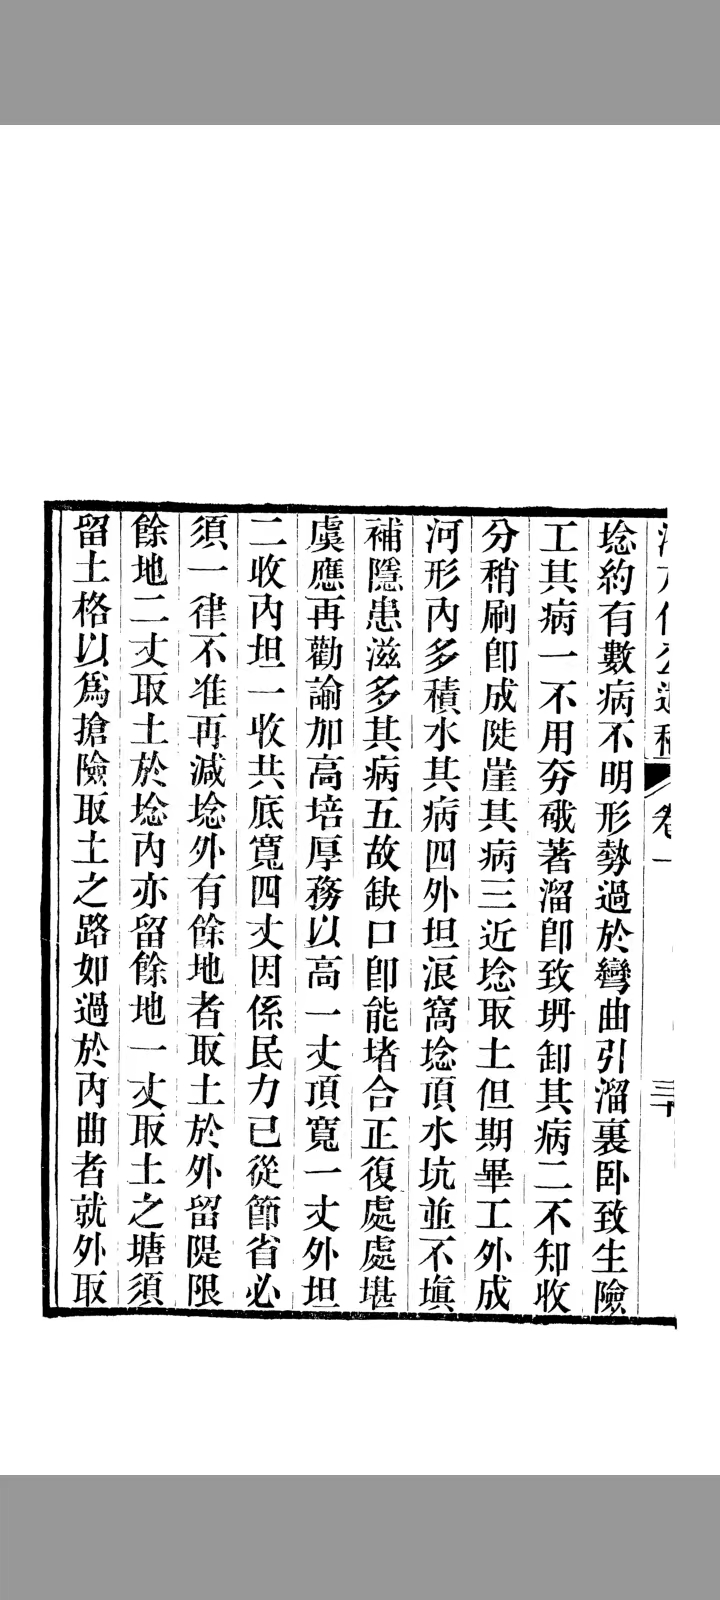 卷一
三十
埝約有數病不明形勢過於彎曲引溜裏卧致生險
工其病一不用夯硪著溜卽致坍卸其病二不知收
分稍刷卽成陡崖其病三近埝取土但期畢工外成
河形內多積水其病四外坦浪窩埝頂水坑並不塡
補隱患滋多其病五故缺口卽能堵合正復處處堪
虞應再勸諭加高培厚務以高一丈頂寬一丈外坦
二收內坦一收共底寬四丈因係民力已從節省必
須一律不准再減埝外有餘地者取土於外留隄限
餘地二丈取土於埝內亦留餘地一丈取土之塘須
留土格以爲搶險取土之路如過於內曲者就外取